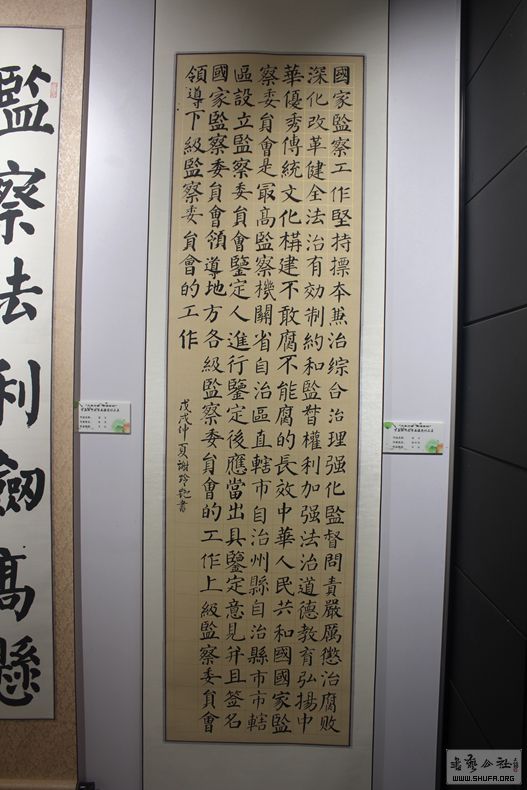 國家監察工作堅持標本兼治綜合治理强化監督問責嚴厲懲治腐敗
深化改革健全法治有効制約和監督權利加强法治道德教育弘揚中
華優秀傳統文化構建不敢腐不能腐的長效中華人民共和國國家監
察委員會是最高監察機關省自治區直轄市自治州縣自治縣市市轄
區設立監察委員會鑒定人進行鑒定後應當出具鑒定意見并且簽名
國家監察委員會領導地方各級監察委員會的工作上級監察委員會
領導下級監察委員會的工作
戊戌仲夏謝玲書
監察法利劒高懸
書藝公社
WWW.SHUFA.ORG